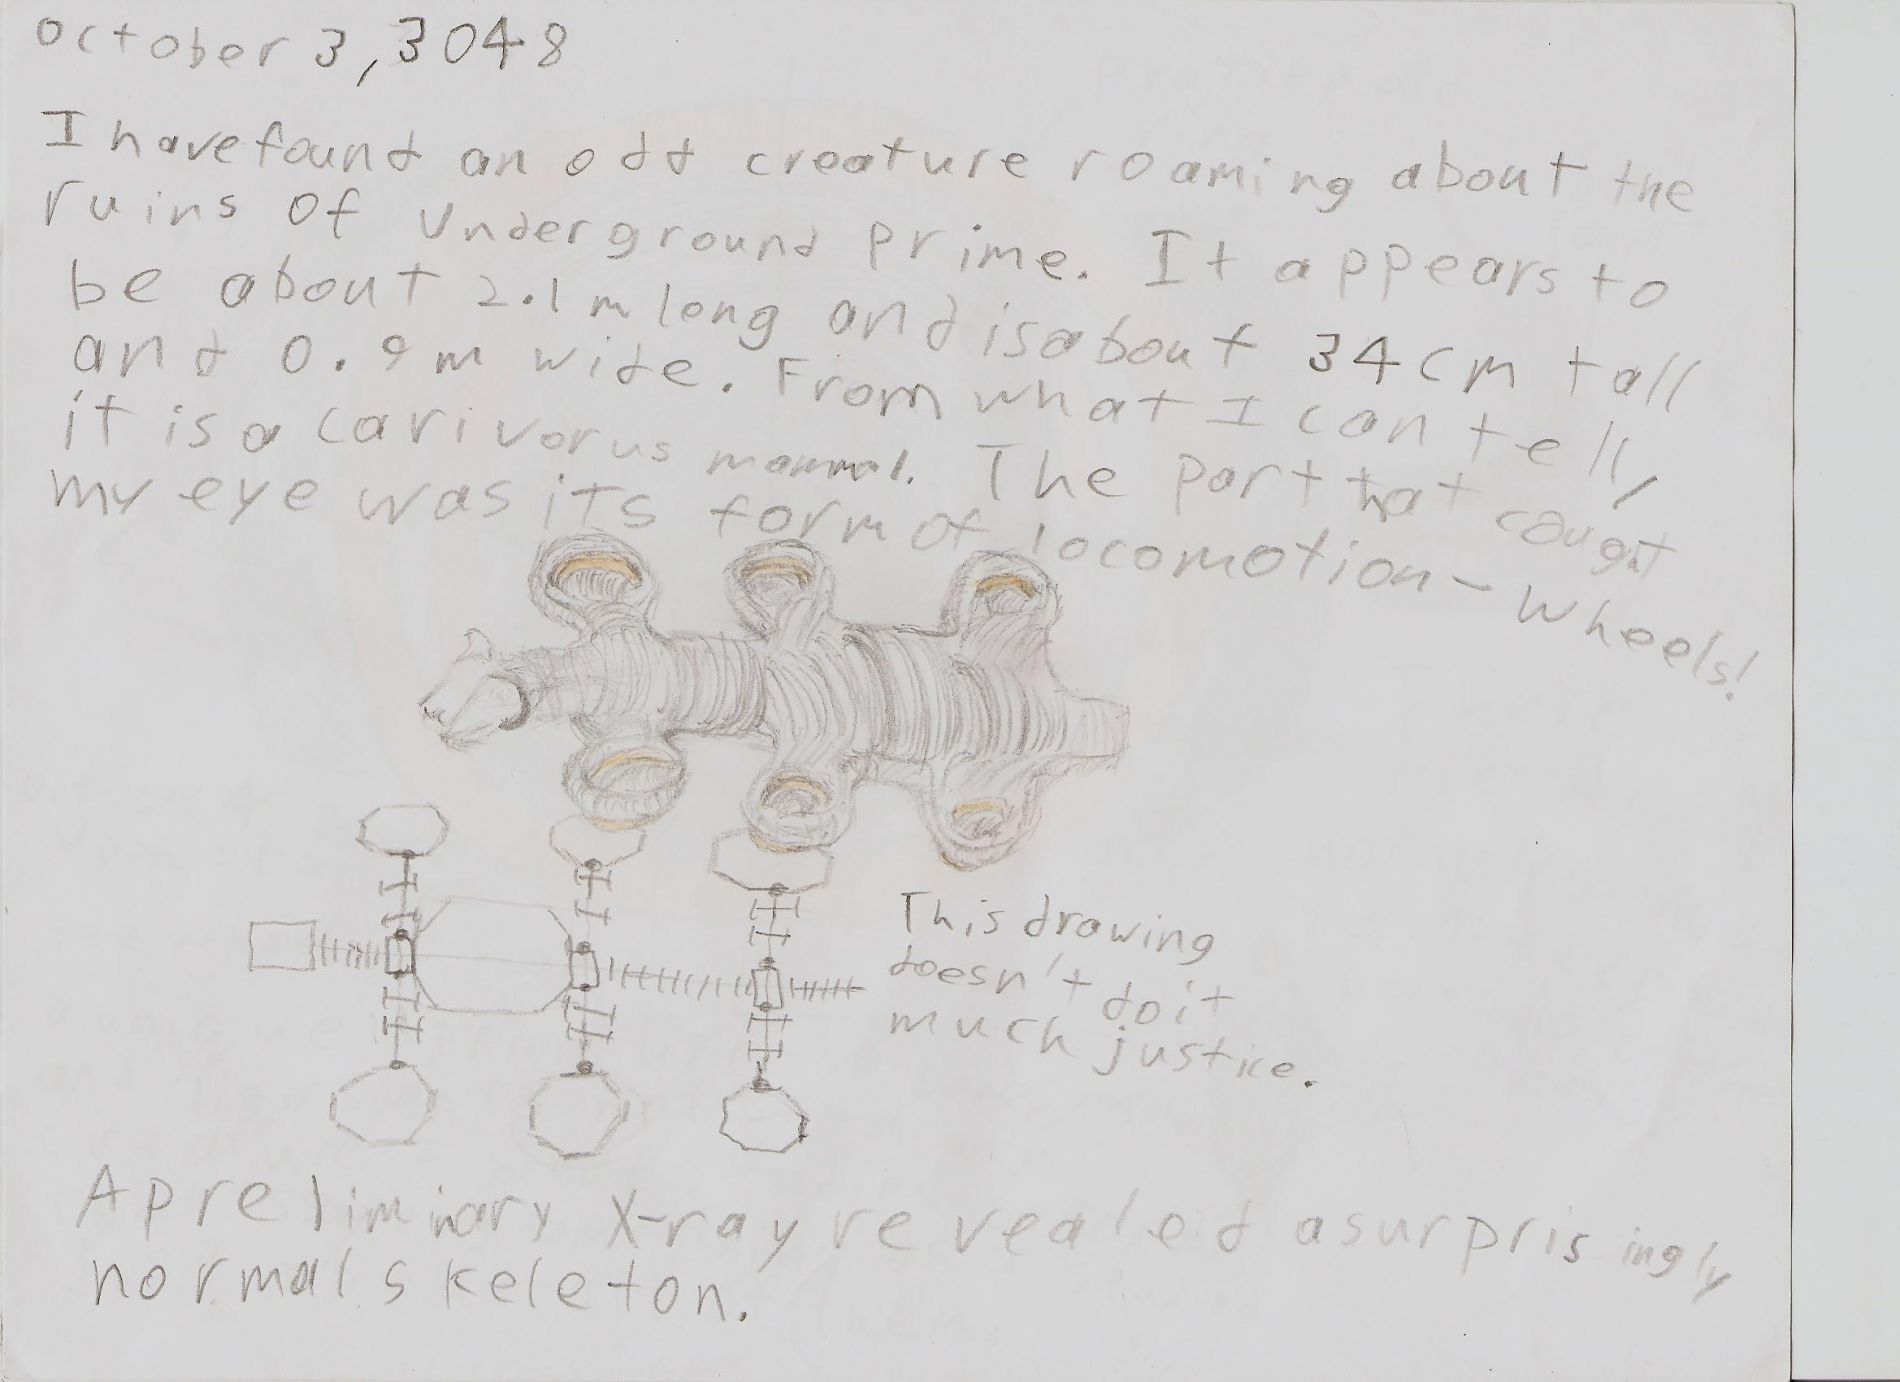 October 3, 3048
I have found an odd creature roaming about the
ruins of Underground Prime. It appears to
be about 2.1 m long and is about 34 cm tall
and 0.9 m wide. From what I can tell,
it is a carivorus mammal. The part that caught
my eye was its form of locomotion - wheels!
This drawing
doesn't do it
much justice.
A preliminary X-ray revealed a surprisingly
normal skeleton.